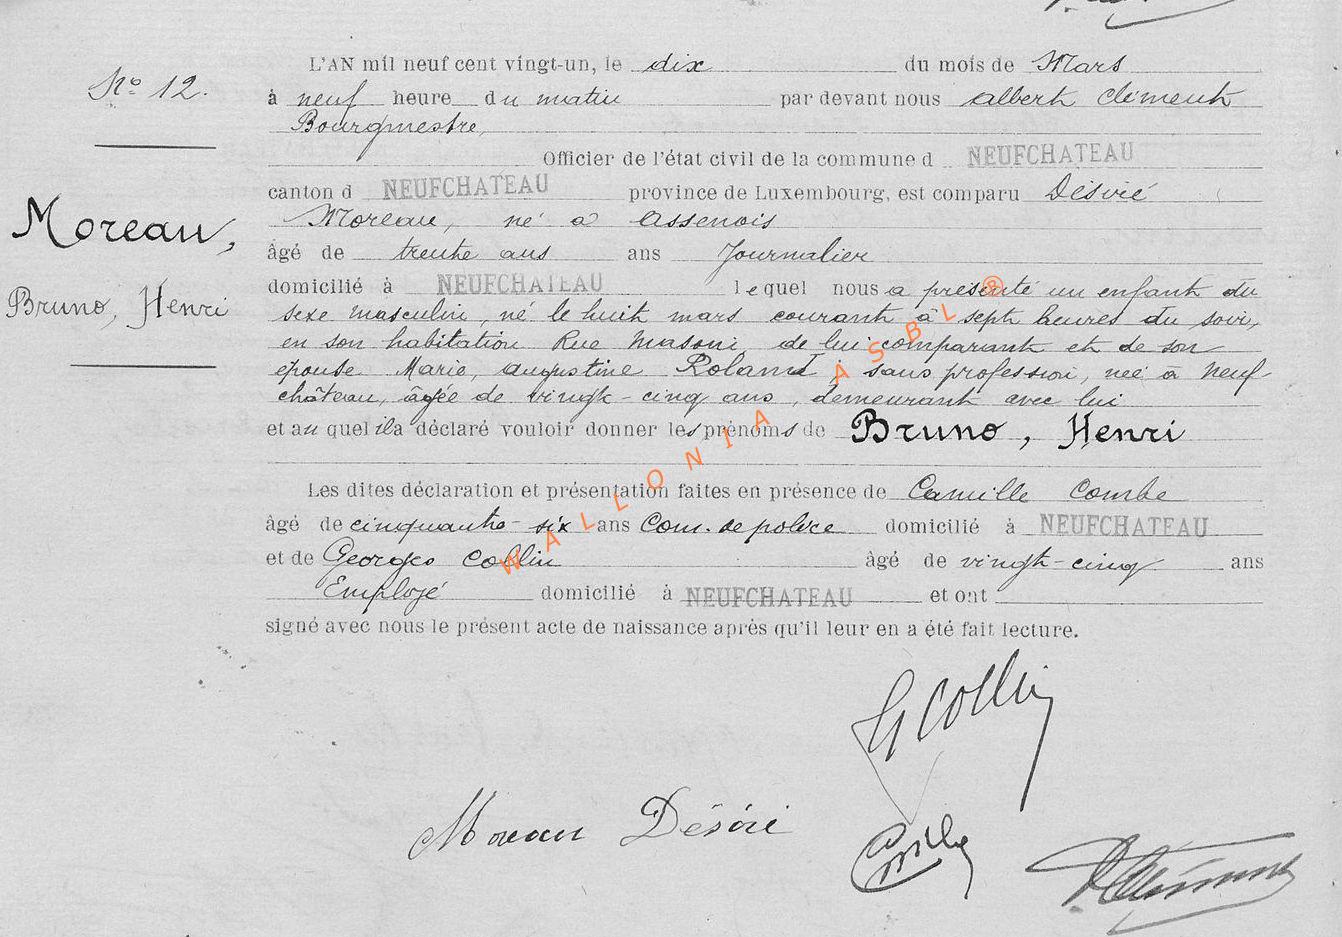 L'AN mil neuf cent vingt-un, le dix du mois de Mars
No 12.
à neuf heure du matin par devant nous albert Clément
Bourgmestre,
Officier de l'état civil de la commune d NEUFCHATEAU
canton d NEUFCHATEAU province de Luxembourg, est comparu Désiré
Moreau, né à Assenois
Moreau,
âgé de trente ans ans Journalier
domicilié à NEUFCHATEAU lequel nous a présenté un enfant du
Bruno, Henri
sexe masculin, né le huit mars courant à sept heures du soir,
en son habitation Rue de lui comparant et de son
épouse Marie, augustine Roland, sans profession, née à Neuf-
château, âgée de vingt-cinq ans, demeurant avec lui
et au quel il a déclaré vouloir donner les prénoms de Bruno, Henri
Les dites déclaration et présentation faites en présence de Camille Combe
âgé de cinquante-six ans Com. de police domicilié à NEUFCHATEAU
et de Georges Collin âgé de vingt-cinq ans
Employé domicilié à NEUFCHATEAU et ont
signé avec nous le présent acte de naissance après qu'il leur en a été fait lecture.
G Collin
Moreau Désiré
WALLONIA ASBL ®